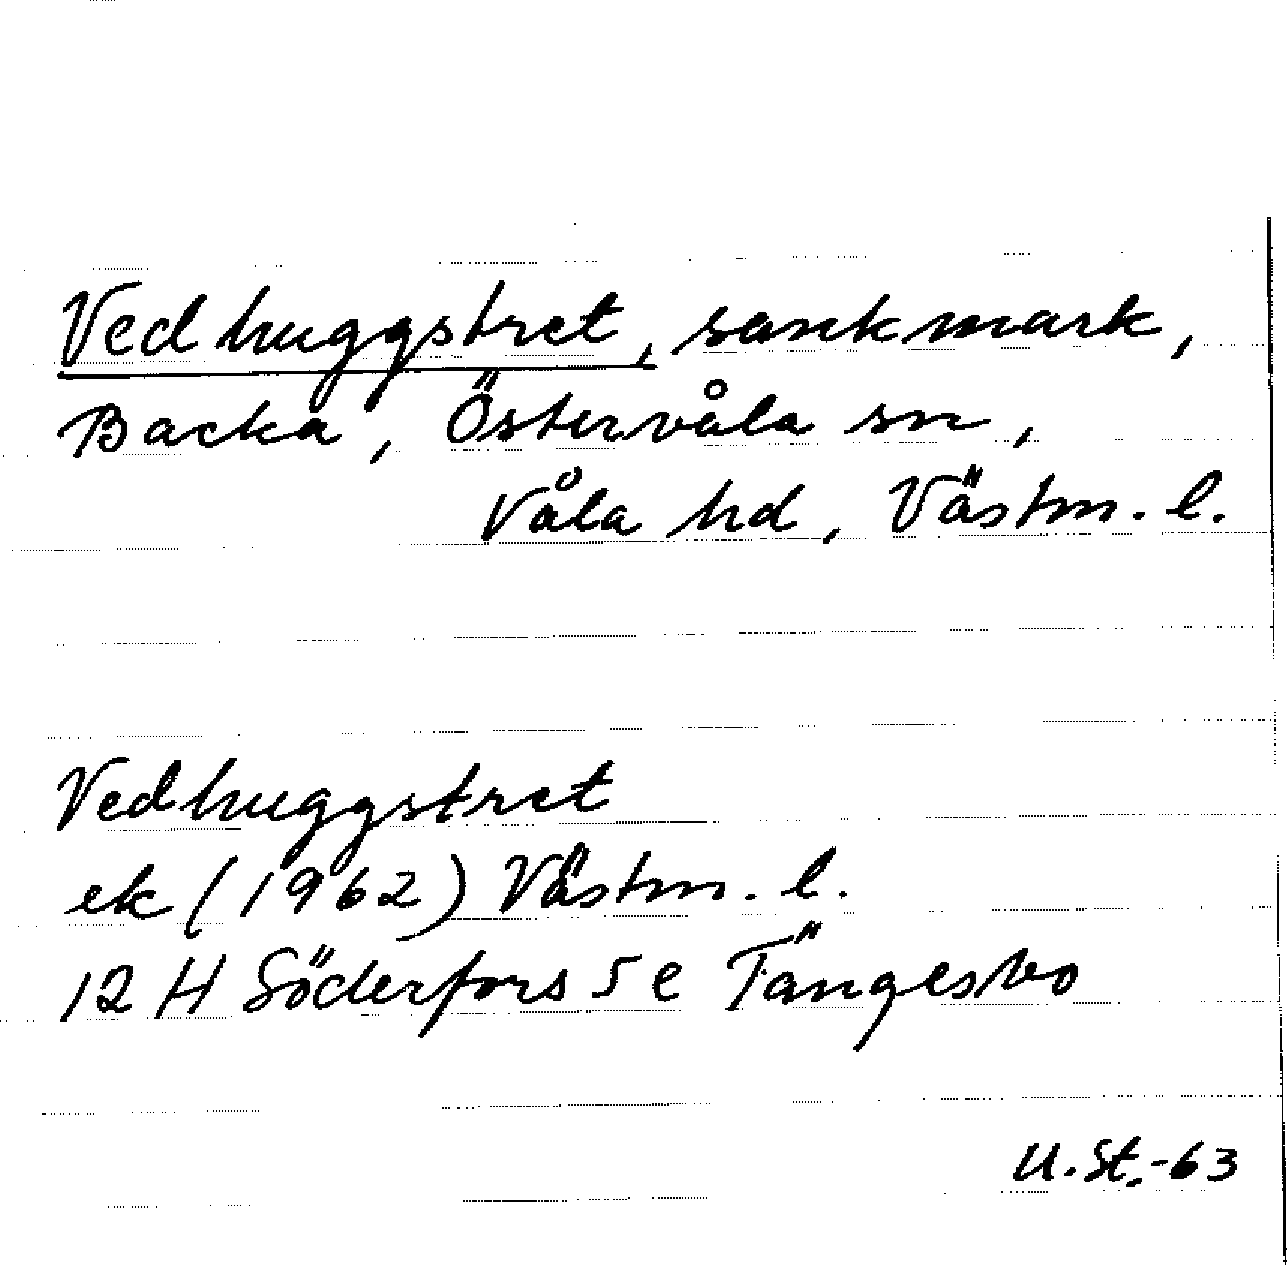 Vedhuggstret, sankmark,
Backa, Östervåla sn,
Våla hd, Västm. l.
Vedhuggstret
ek (1962) Västm. l.
12 H Söderfors 5 e Tängesbo
U. St. -63